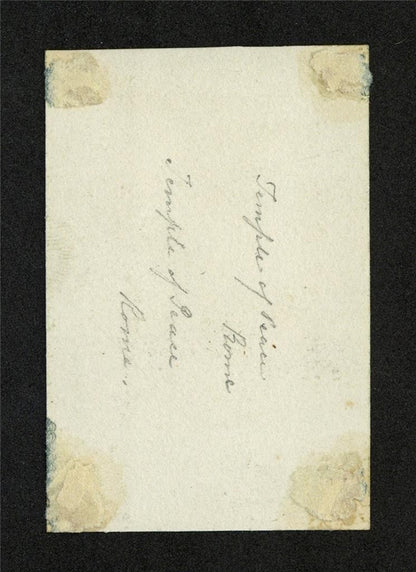 Temple of Peace
Rome
Temple of Peace
Rome.